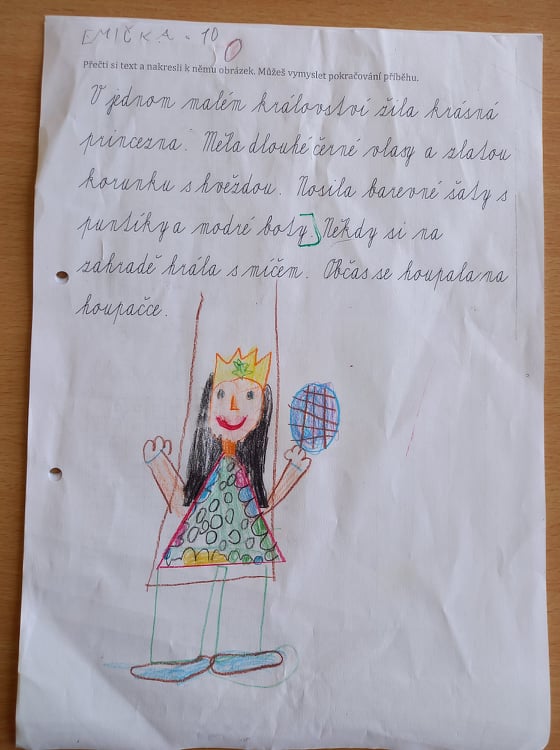 EMIČKA - 10
Přečti si text a nakresli k němu obrázek. Můžeš vymyslet pokračování příběhu.
V jednom malém království žila krásná
princezna. Měla dlouhé černé vlasy a zlatou
korunku s hvězdou. Nosila barevné šaty s
puntíky a modré boty. Někdy si na
zahradě hrála s míčem. Občas se houpala na
houpačce.